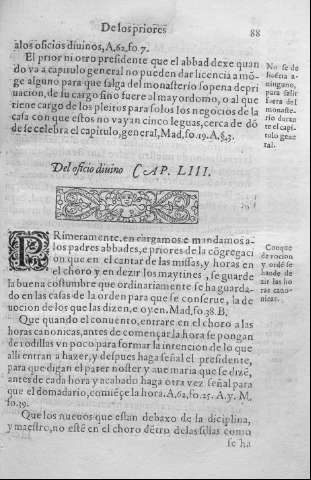 De los priores
88
alos oficios diuinos, A, 62, fo. 7.
El prior ni otro presidente que el abbad dexe quan
do va a capitulo general no pueden dar licencia a mõ
ge alguno para que salga del monasterio so pena depri
uacion, de su cargo sino fuere al mayordomo, o al que
tiene cargo de los pleitos para solos los negocios de la
casa con que estos no vayan cinco leguas, cerca de dõ
de se celebra el capitulo, general, Mad, fo. 19. A, §, 3.
No se dé
licẽcia a
ninguno,
para salir
fuera del
monaste-
rio duran
te el capi
tulo gene
ral.
Del oficio diuino CAP. LIII.
PRimeramente, en cargamos e mandamos a-
los padres abbades, e priores de la cõgregaci
on que en el cantar de las missas, y horas en
el choro y en dezir los maytines, se guarde
la buena costumbre que ordinariamente se ha guarda-
do en las casas de la orden para que se conserue, la de
uocion de los que las dizen, e oyen. Mad, fo 38. B.
Con que
deuocion
y ordẽ se
hande de
zir las ho
ras cano-
nicas.
Que quando el conuento, entrare en el choro a las
horas canonicas, antes de començar la hora se pongan
de rodillas vn poco para formar la intencion de lo que
alli entran a hazer, y despues haga señal el presidente,
para que digan el pater noster y aue maria que se dizẽ,
antes de cada hora y acabado haga otra vez señal para
que el domadario, comiẽçe la hora. A, 62, fo. 25. A, y. M.
fo. 39.
Que los nueuos que estan debaxo de la diciplina,
y maestro, no estẽ en el choro dẽtro, de las sillas como
se ha